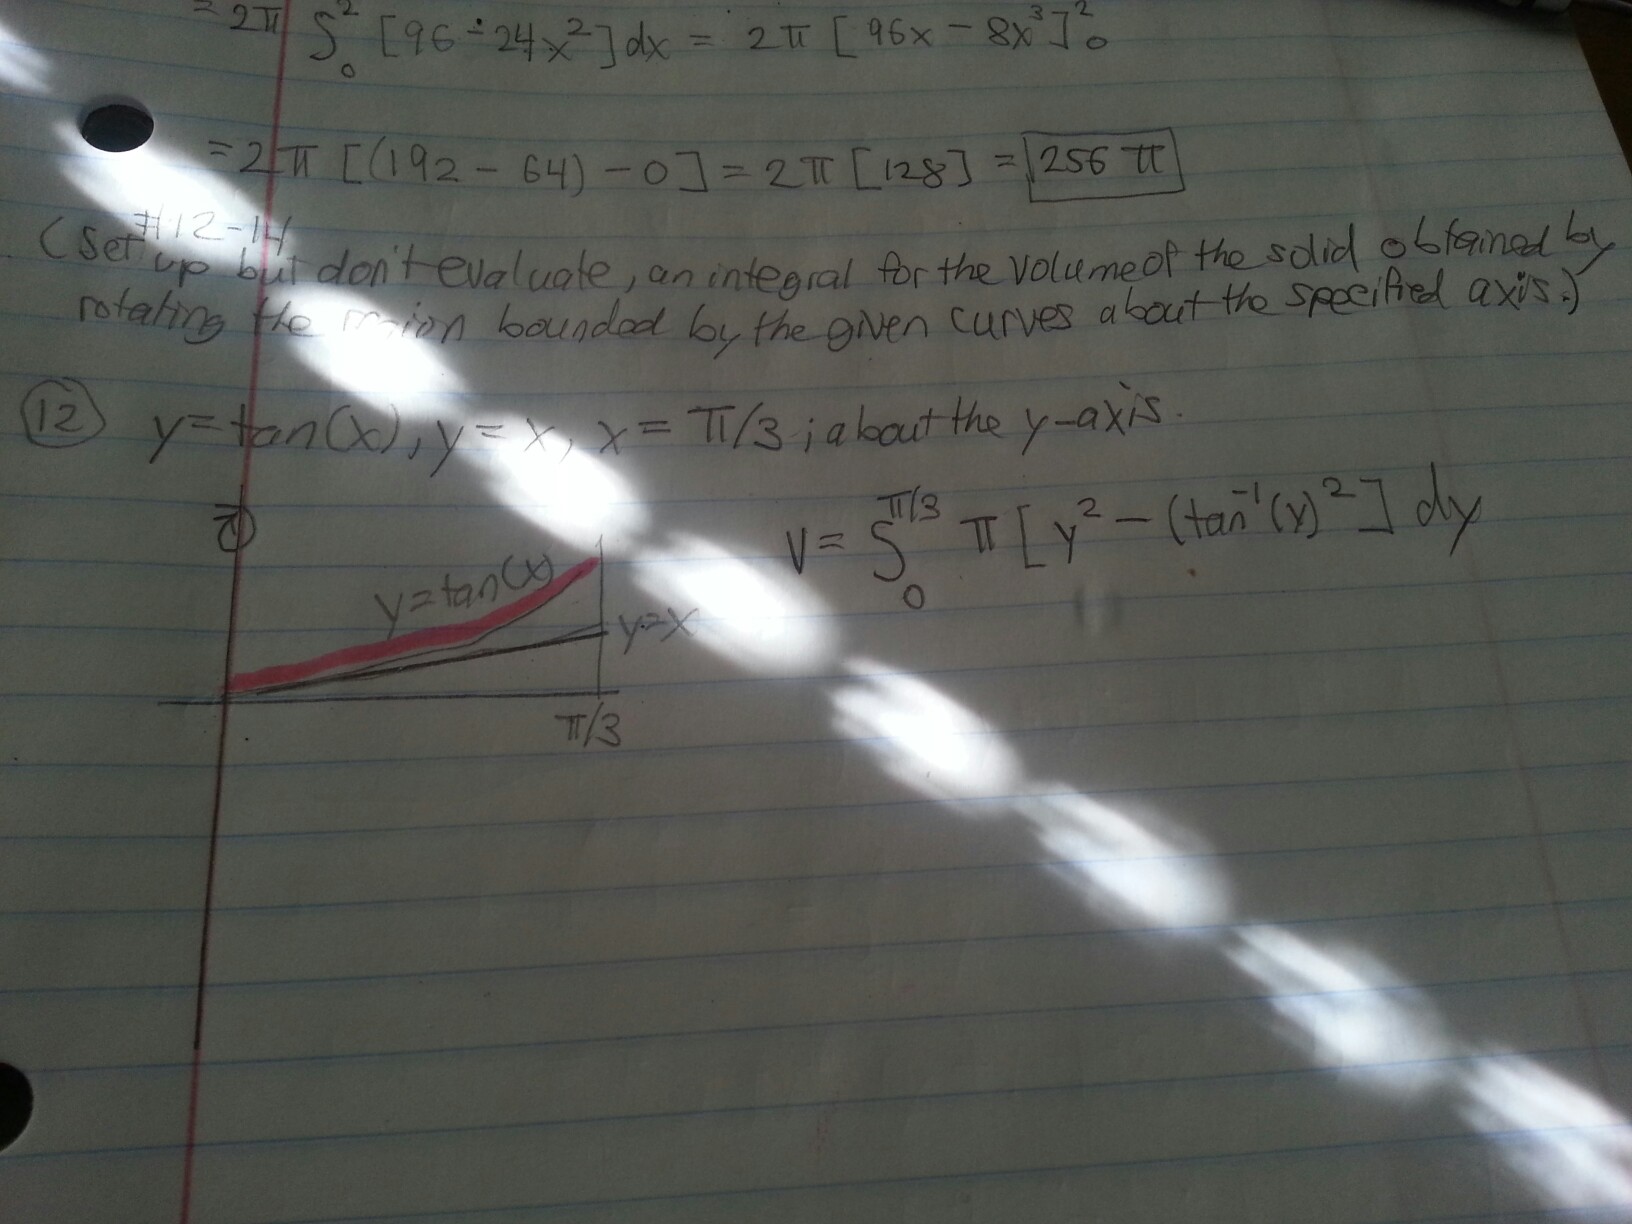 = 2π ∫₀² [96 - 24x²] dx = 2π [96x - 8x³]₀²
= 2π [(192 - 64) - 0] = 2π [128] = 256 π
#12-14
(Set up but don't evaluate, an integral for the volume of the solid obtained by
rotating the region bounded by the given curves about the specified axis.)
12 y = tan(x), y = x, x = π/3 ; about the y-axis.
V = ∫₀^(π/3) π [y² - (tan⁻¹(y)²] dy
y=tan(x)
y=x
π/3